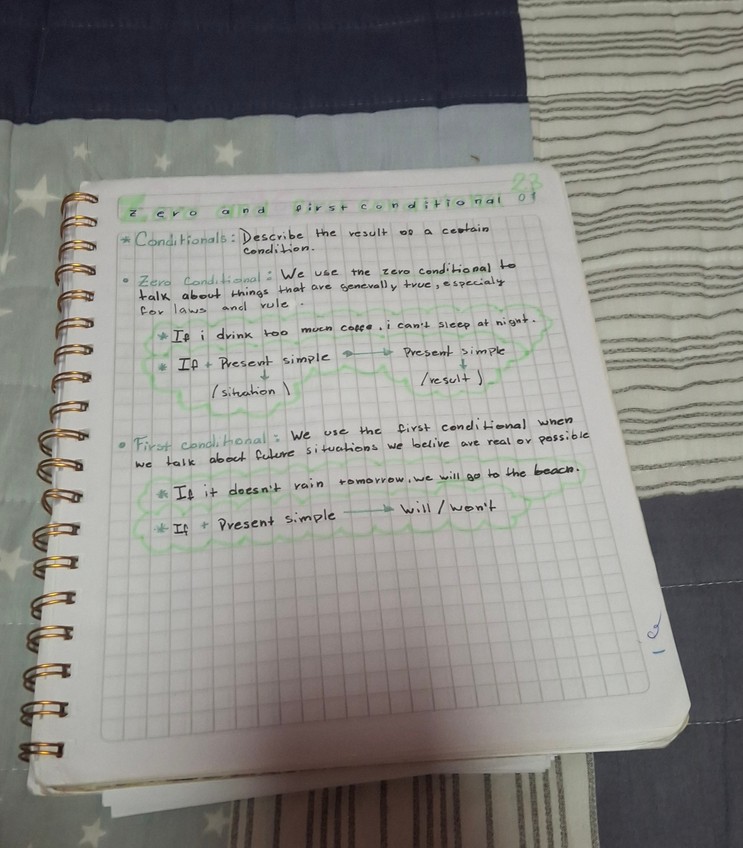 23
Zero and first conditional 01
* Conditionals: Describe the result of a certain
condition.
• Zero Conditional: We use the zero conditional to
talk about things that are generally true, especialy
for laws and rule.
* If i drink too much coffe, i can't sleep at night.
* If + Present simple → Present simple
(situation) (result)
• First conditional: We use the first conditional when
we talk about future situations we belive are real or possible
* If it doesn't rain tomorrow, we will go to the beach.
* If + Present simple → Will / won't